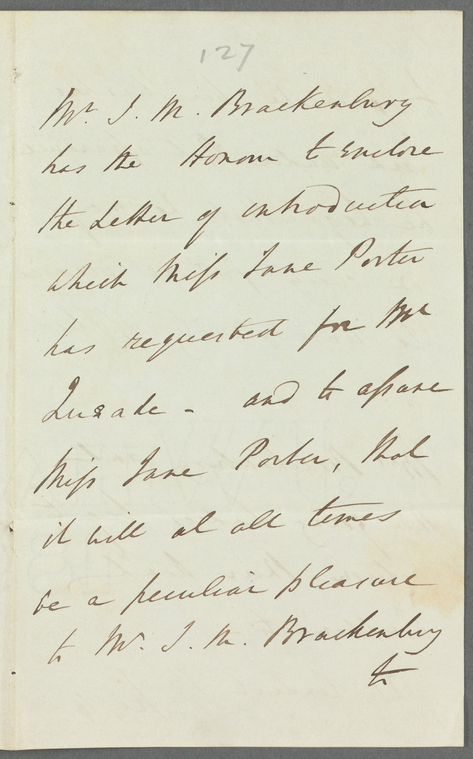 127
Mr. J. M. Brackenbury
has the Honour to Enclose
the Letter of introduction
which Miss Jane Porter
has requested for Mr
- and to assure
Miss Jane Porter, that
it will at all times
be a peculiar pleasure
to Mr. J. M. Brackenbury
to